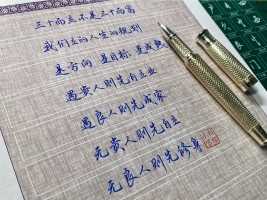 三十而立不是三十而富
我们立的人生的规划
是方向 是目标 是成熟
遇贵人则先立业
遇良人则先成家
无贵人则先自立
无良人则先修身